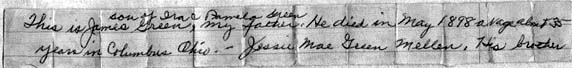 son of Ira & Pamela Green
This is James Green, my father. He died in May 1898 at age about 55
years in Columbus Ohio. — Jessie Mae Green Mellen, His brother